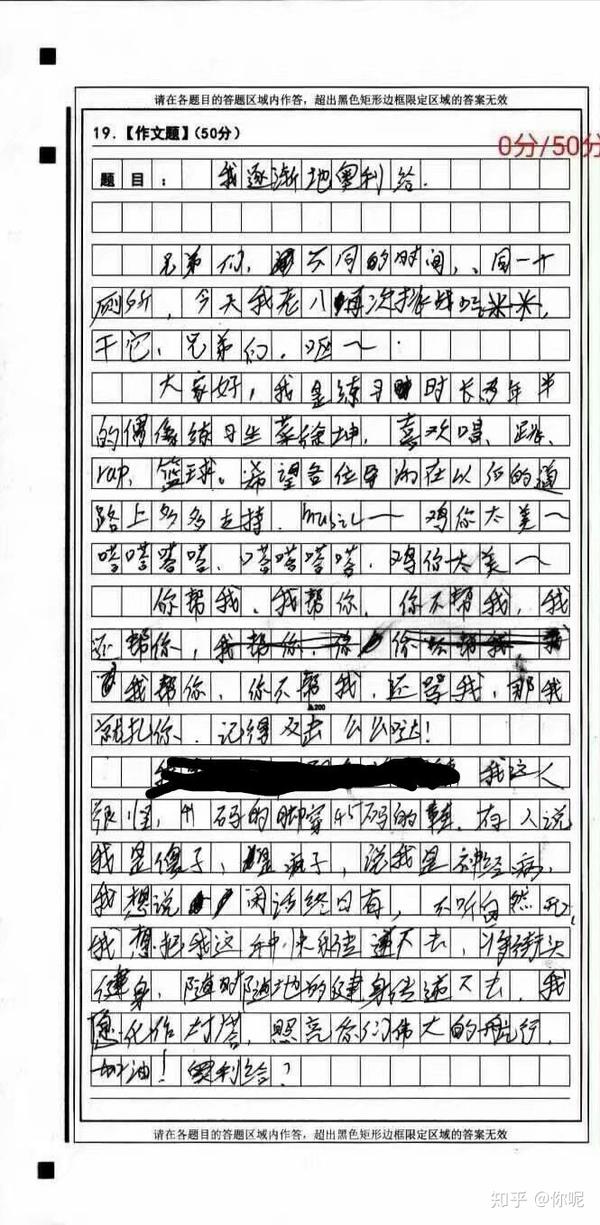 请在各题目的答题区域内作答，超出黑色矩形边框限定区域的答案无效
19.【作文题】(50分)
0分/50分
题目： 我逐渐地奥利给.
兄弟们, 不同的时间,、同一个
厕所, 今天我老八再次挑战
干它, 兄弟们. 呕～
大家好, 我是练习时长两年半
的偶像练习生蔡徐坤, 喜欢唱、跳、
rap, 篮球。希望各位导师在以后的道
路上多多支持. music～ 鸡你太美～
嗒嗒嗒嗒, 嗒嗒嗒嗒, 鸡你太美～
你帮我、我帮你. 你不帮我, 我
还帮你,
我帮你, 你不帮我, 还骂我, 那我
就扎你. 记得双击么么哒!
▲200
我这人
很怪, 41码的脚穿45码的鞋. 有人说
我是傻子, 是疯子, 说我是神经病,
我想说 闲话终日有, 不听自然无,
我想把我这种快乐传递下去, 将街头
健身, 随时随地的健身传递下去. 我
愿化作灯塔, 照亮你们伟大的航行,
加油! 奥利给?
请在各题目的答题区域内作答，超出黑色矩形边框限定区域的答案无效
知乎 @你呢